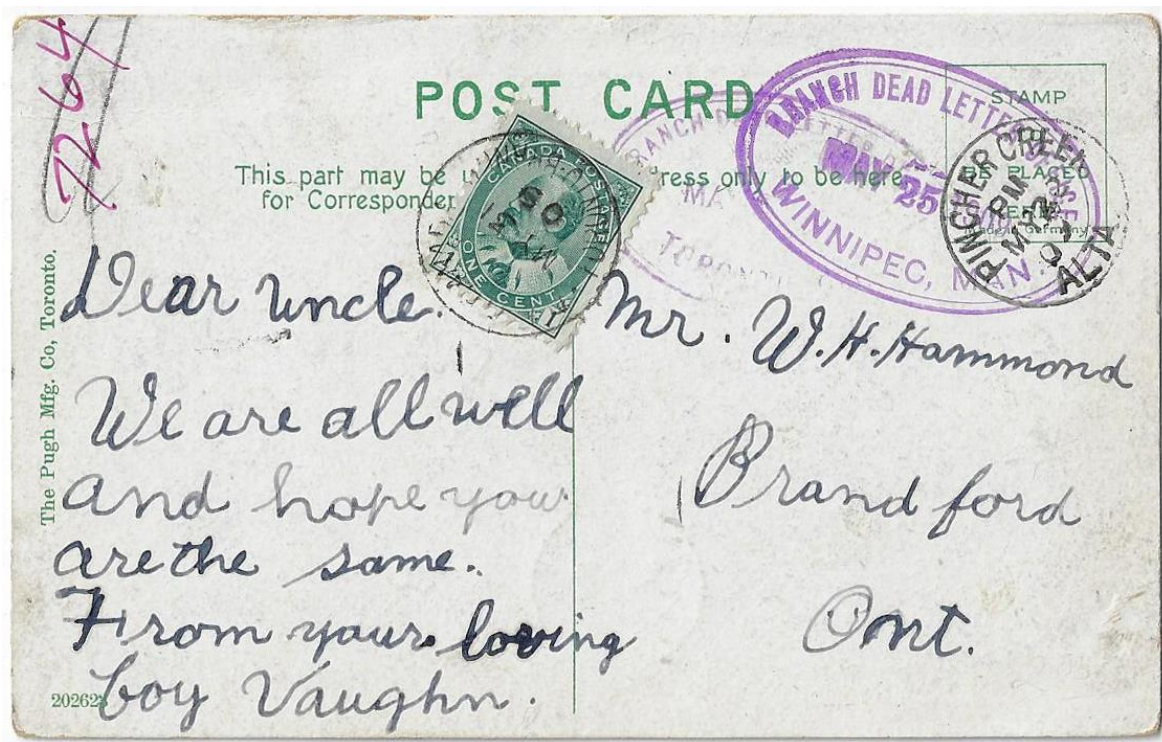 7264
POST CARD
This part may be u
for Corresponden
ress only to be here
STAMP
BE PLACED
Made in Germany
BRANCH DEAD LETTER OFFICE
MAY 25
WINNIPEG, MAN.
BRANCH DEAD LETTER
MA
TORONTO
PINCHER CREEK
PM
MY 2
ALTA
CANADA POSTAGE
ONE CENT
The Pugh Mfg. Co, Toronto.
Dear Uncle.
We are all well
and hope you
are the same.
From your loving
boy Vaughn.
Mr. W. H. Hammond
Brand ford
Ont.